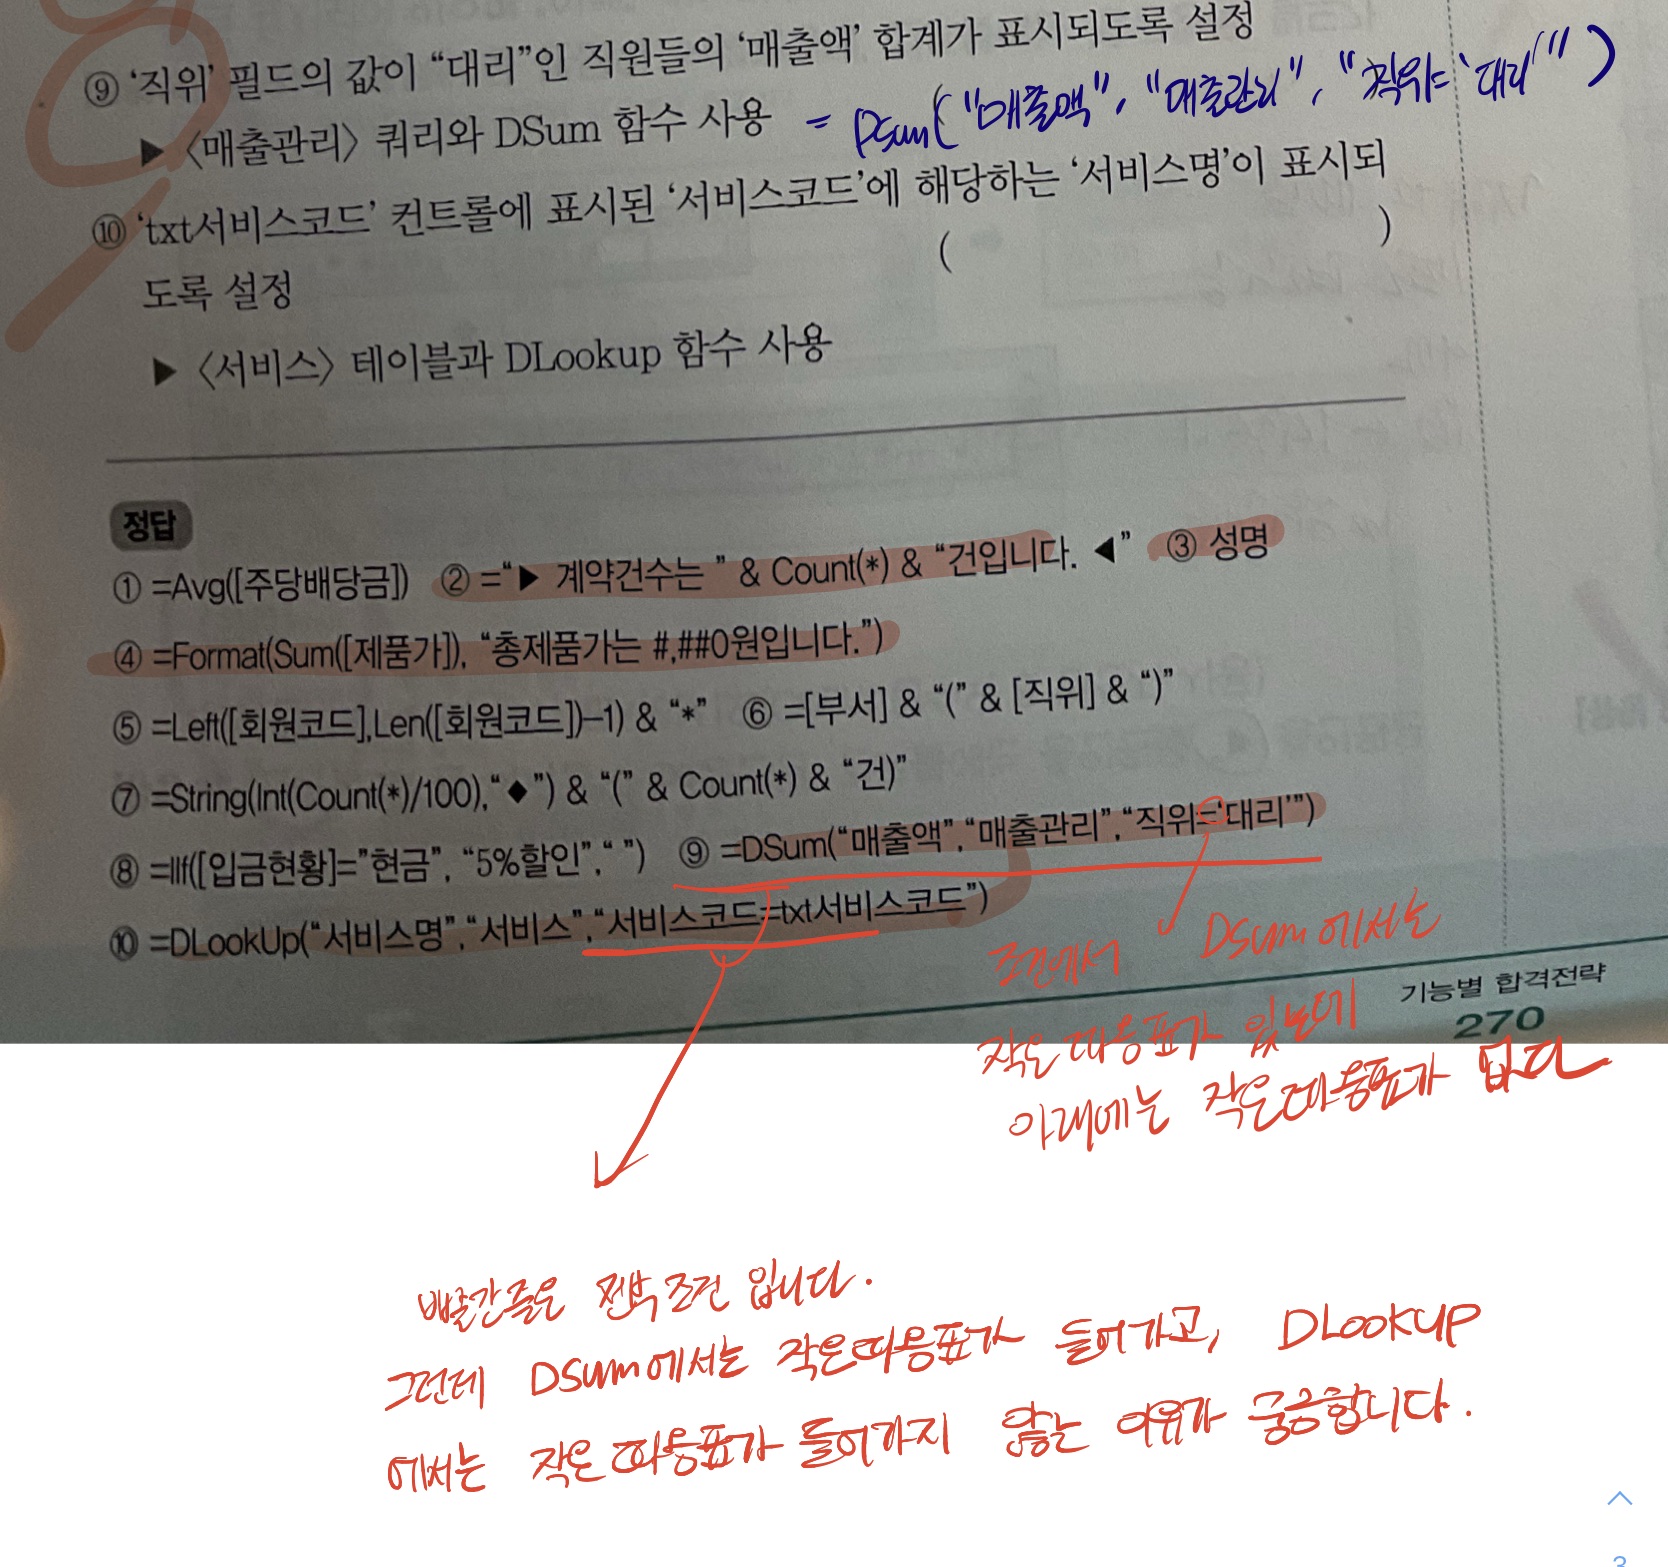 ⑨ ‘직위’ 필드의 값이 “대리”인 직원들의 ‘매출액’ 합계가 표시되도록 설정
▶ 〈매출관리〉 쿼리와 DSum 함수 사용 = DSum("매출액", "매출관리", "직위='대리'")
⑩ ‘txt서비스코드’ 컨트롤에 표시된 ‘서비스코드’에 해당하는 ‘서비스명’이 표시되
도록 설정 ( )
▶ 〈서비스〉 테이블과 DLookup 함수 사용
정답
① =Avg([주당배당금]) ② =“▶ 계약건수는 ” & Count(*) & “건입니다. ◀” ③ 성명
④ =Format(Sum([제품가]), “총제품가는 #,##0원입니다.”)
⑤ =Left([회원코드],Len([회원코드])-1) & “*” ⑥ =[부서] & “(” & [직위] & “)”
⑦ =String(Int(Count(*)/100),“◆”) & “(” & Count(*) & “건)”
⑧ =IIf([입금현황]=”현금”, “5%할인”,“ ”) ⑨ =DSum(“매출액”,“매출관리”,“직위=‘대리’”)
⑩ =DLookUp(“서비스명”,“서비스”,“서비스코드=txt서비스코드”)
조건에서 DSum에서는
작은따옴표가 있는데
아래에는 작은따옴표가 없다
기능별 합격전략
270
빨간줄은 전부 조건 입니다.
그런데 DSum에서는 작은따옴표가 들어가고, DLOOKUP
에서는 작은따옴표가 들어가지 않는 이유가 궁금합니다.
3